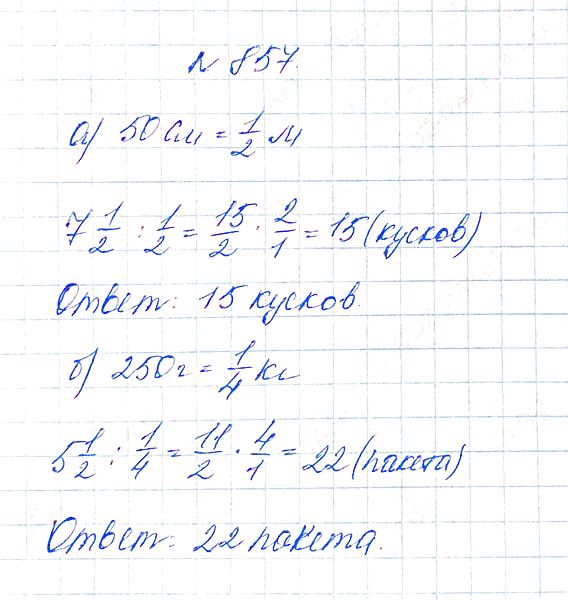 № 857.
а) 50 см = 1/2 м
7 1/2 : 1/2 = 15/2 · 2/1 = 15 (кусков)
Ответ: 15 кусков.
б) 250 г = 1/4 кг
5 1/2 : 1/4 = 11/2 · 4/1 = 22 (пакета)
Ответ: 22 пакета.